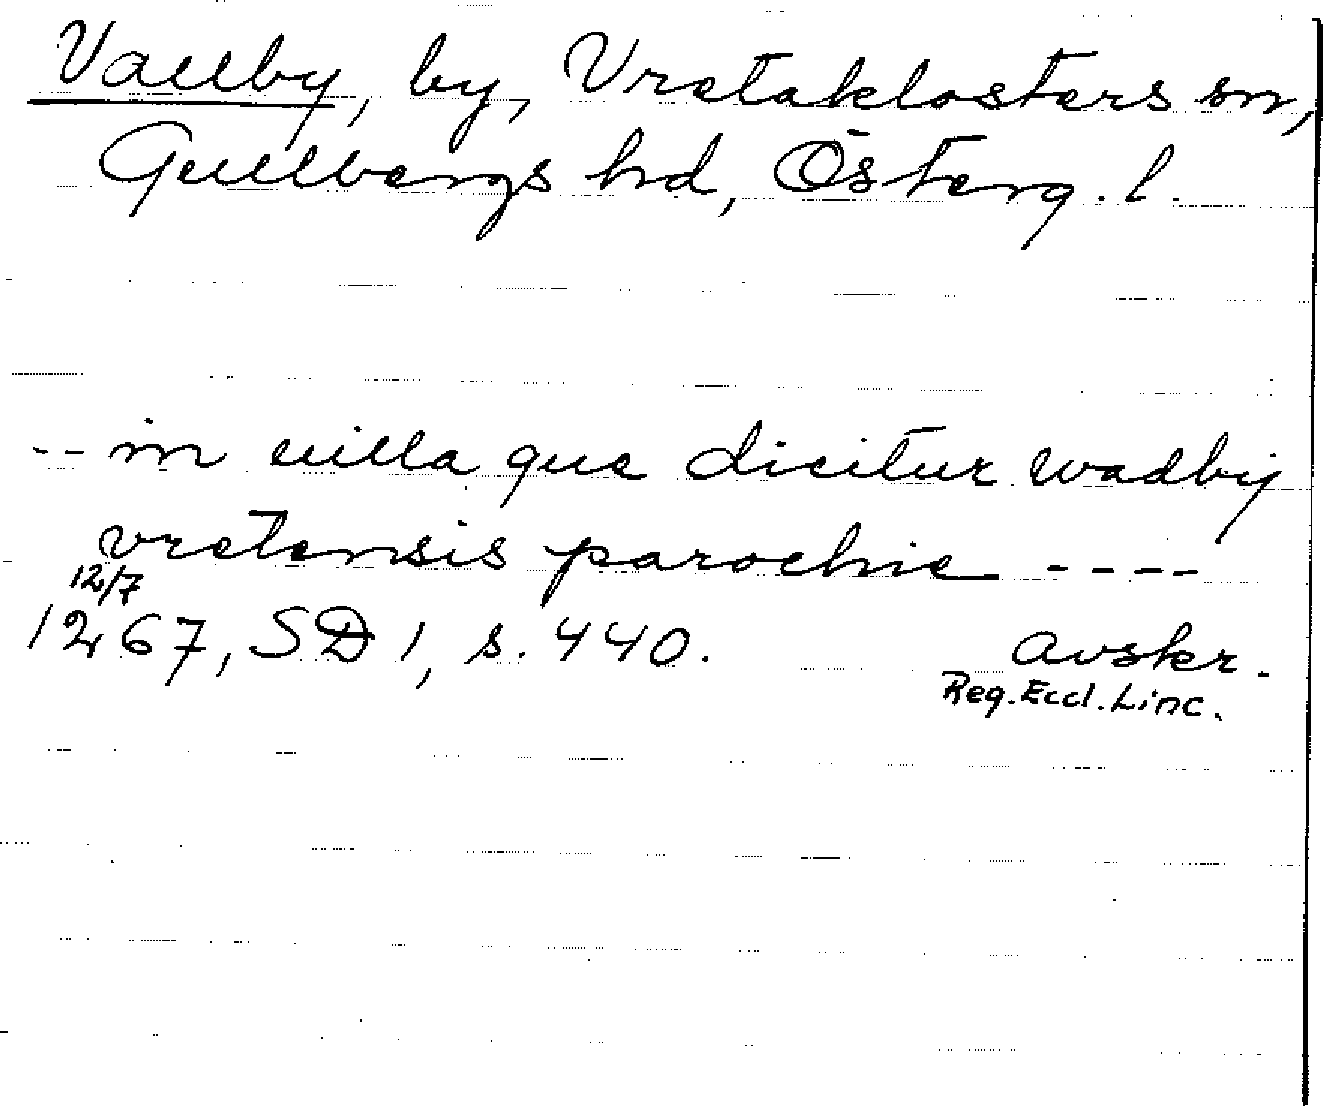 Vallby, by, Vretaklosters sn,
Gullbergs hd, Österg. l.
-- in uilla que dicitur wadby
vretensis parochie ----
12/7
1267, SD 1, s. 440. avskr.
Reg. Eccl. Linc.